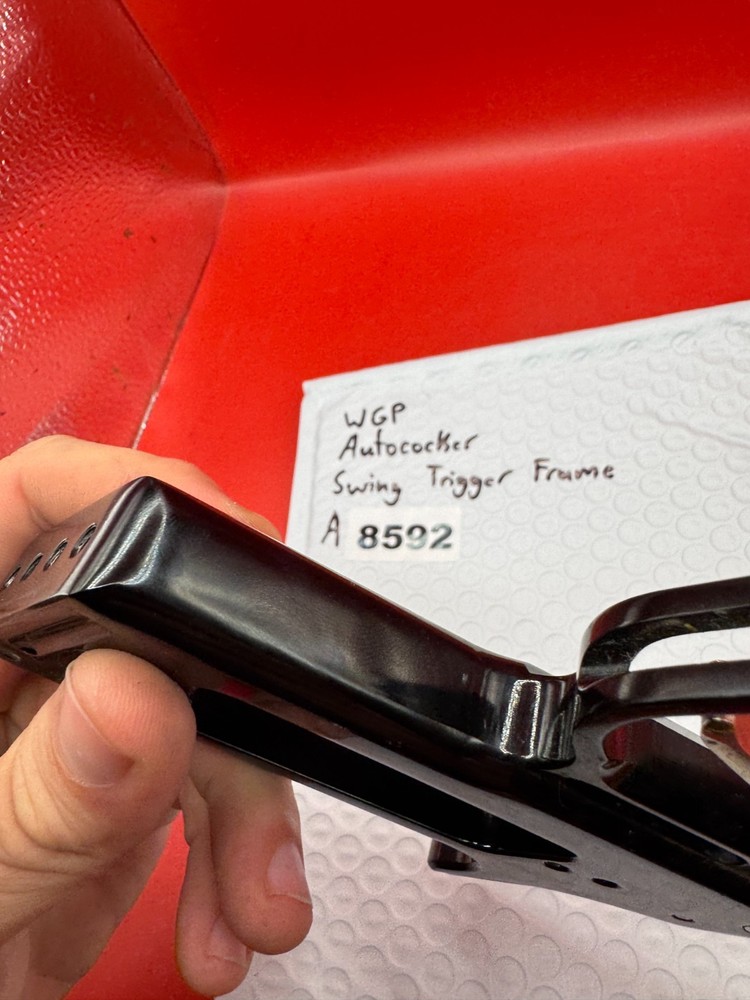 WGP
Autococker
Swing Trigger Frame
A 8592